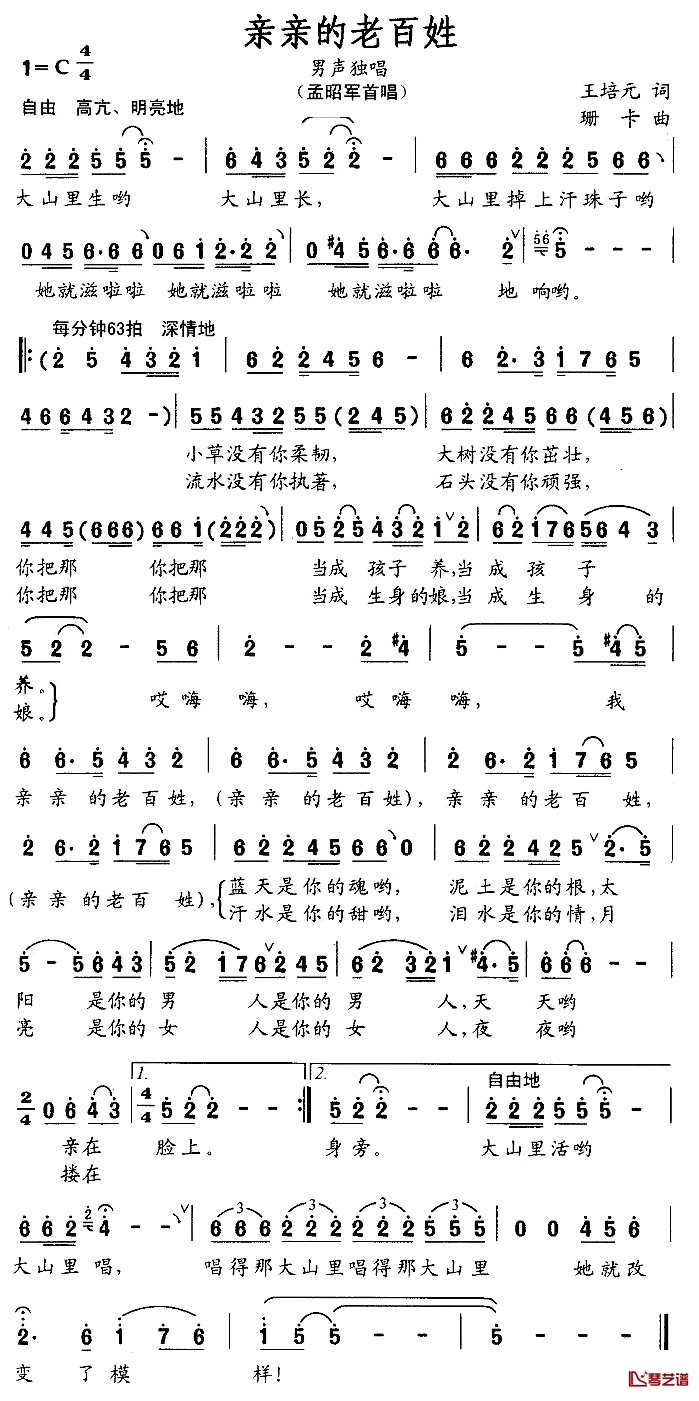 亲亲的老百姓
1=C 4/4
男声独唱
(孟昭军首唱)
王培元 词
珊 卡 曲
自由 高亢、明亮地
大山里生哟 大山里长, 大山里掉上汗珠子哟
她就滋啦啦 她就滋啦啦 她就滋啦啦 地 响哟。
每分钟63拍 深情地
小草没有你柔韧, 大树没有你茁壮,
流水没有你执著, 石头没有你顽强,
你把那 你把那 当成 孩子 养,当 成 孩 子
你把那 你把那 当成 生身的娘,当 成 生 身 的
养。 哎嗨 嗨, 哎嗨 嗨, 我
娘。
亲 亲 的老百姓,(亲 亲 的老百姓), 亲 亲 的老百 姓,
(亲 亲 的老百 姓), 蓝天是你的魂哟, 泥土是你的根,太
汗水是你的甜哟, 泪水是你的情,月
阳 是你的 男 人是你的 男 人,天 天哟
亮 是你的 女 人是你的 女 人,夜 夜哟
1. 2. 自由地
2/4 4/4
亲在 脸上。 身旁。 大山里活哟
搂在
大山里 唱, 唱得那大山里唱得那大山里 她就改
变 了 模 样!
琴艺谱